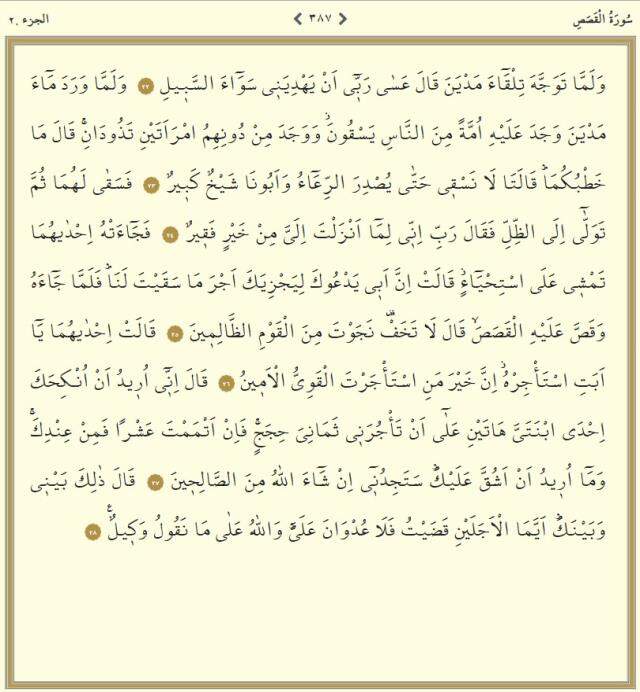 سُورَةُ الْقَصَصِ ‹ ٣٨٧ › الجزء ٢٠
وَلَمَّا تَوَجَّهَ تِلْقَٓاءَ مَدْيَنَ قَالَ عَسٰى رَبّ۪ٓي اَنْ يَهْدِيَن۪ي سَوَٓاءَ السَّب۪يلِ ٢٢ وَلَمَّا وَرَدَ مَٓاءَ
مَدْيَنَ وَجَدَ عَلَيْهِ اُمَّةً مِنَ النَّاسِ يَسْقُونَۘ وَوَجَدَ مِنْ دُونِهِمُ امْرَاَتَيْنِ تَذُودَانِۚ قَالَ مَا
خَطْبُكُمَاۜ قَالَتَا لَا نَسْق۪ي حَتّٰى يُصْدِرَ الرِّعَٓاءُ وَاَبُونَا شَيْخٌ كَب۪يرٌ ٢٣ فَسَقٰى لَهُمَا ثُمَّ
تَوَلّٰٓى اِلَى الظِّلِّ فَقَالَ رَبِّ اِنّ۪ي لِمَٓا اَنْزَلْتَ اِلَيَّ مِنْ خَيْرٍ فَق۪يرٌ ٢٤ فَجَٓاءَتْهُ اِحْدٰيهُمَا
تَمْش۪ي عَلَى اسْتِحْيَٓاءٍۘ قَالَتْ اِنَّ اَب۪ي يَدْعُوكَ لِيَجْزِيَكَ اَجْرَ مَا سَقَيْتَ لَنَاۜ فَلَمَّا جَٓاءَهُ
وَقَصَّ عَلَيْهِ الْقَصَصَۙ قَالَ لَا تَخَفْ۠ نَجَوْتَ مِنَ الْقَوْمِ الظَّالِم۪ينَ ٢٥ قَالَتْ اِحْدٰيهُمَا يَٓا
اَبَتِ اسْتَأْجِرْهُۘ اِنَّ خَيْرَ مَنِ اسْتَأْجَرْتَ الْقَوِيُّ الْاَم۪ينُ ٢٦ قَالَ اِنّ۪ٓي اُر۪يدُ اَنْ اُنْكِحَكَ
اِحْدَى ابْنَتَيَّ هَاتَيْنِ عَلٰٓى اَنْ تَأْجُرَن۪ي ثَمَانِيَ حِجَجٍۚ فَاِنْ اَتْمَمْتَ عَشْرًا فَمِنْ عِنْدِكَۚ
وَمَٓا اُر۪يدُ اَنْ اَشُقَّ عَلَيْكَۜ سَتَجِدُن۪ٓي اِنْ شَٓاءَ اللهُ مِنَ الصَّالِح۪ينَ ٢٧ قَالَ ذٰلِكَ بَيْن۪ي
وَبَيْنَكَۜ اَيَّمَا الْاَجَلَيْنِ قَضَيْتُ فَلَا عُدْوَانَ عَلَيَّۜ وَاللهُ عَلٰى مَا نَقُولُ وَك۪يلٌ۟ ٢٨